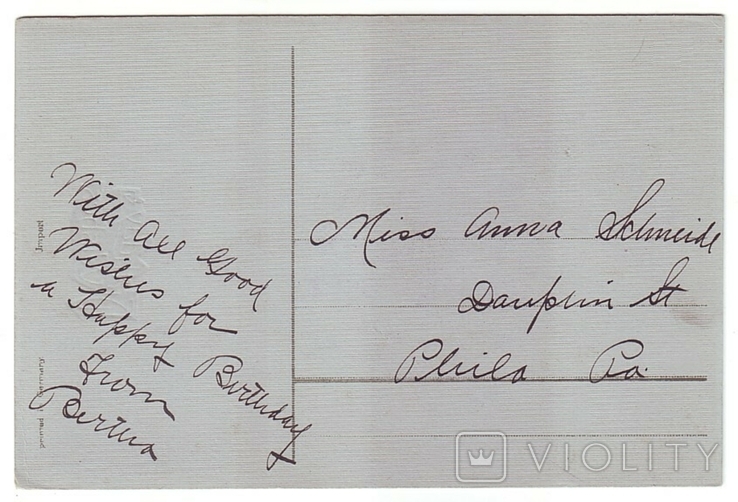 With all Good
Wishes for
a Happy Birthday
From
Bertha
Miss Anna Schneide
Dauphin St
Phila Pa.
Import
Germany
VIOLITY